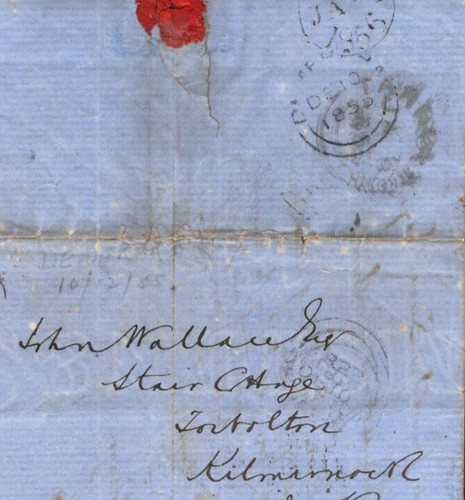 DE 10
1855
10/12/55
John Wallace Esq
Stair Cottage
Torbolton
Kilmarnock